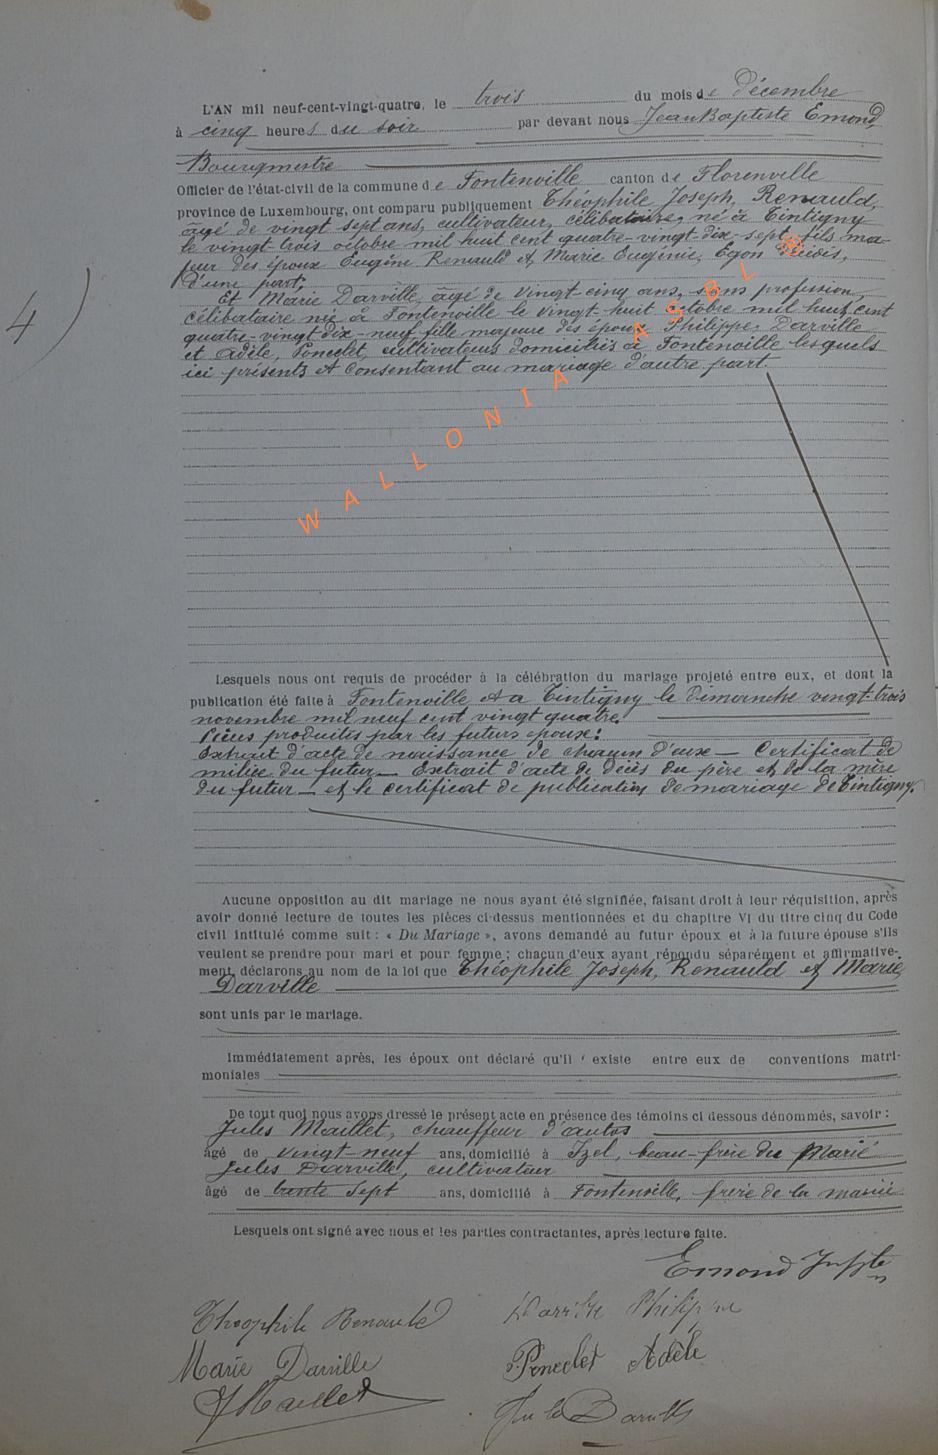 L'AN mil neuf-cent-vingt-quatre, le trois du mois de décembre
à cinq heures du soir par devant nous Jean Baptiste Emond,
Bourgmestre
Officier de l'état-civil de la commune de Fontenoille canton de Florenville
province de Luxembourg, ont comparu publiquement Théophile Joseph, Renauld,
âgé de vingt sept ans, cultivateur, célibataire, né à Tintigny
le vingt-trois octobre mil huit cent quatre-vingt-dix-sept, fils ma-
jeur des époux Eugène Renauld et Marie Eugénie, Egon décédés,
d'une part;
Et Marie Darville, âgé de vingt-cinq ans, sans profession,
célibataire née à Fontenoille le vingt-huit octobre mil huit cent
quatre-vingt-dix-neuf fille majeure des époux Philippe, Darville
et Adèle, Poncelet, cultivateurs domiciliés à Fontenoille lesquels
ici présents et consentant au mariage d'autre part.
4)
WALLONIA ASBL
Lesquels nous ont requis de procéder à la célébration du mariage projeté entre eux, et dont la
publication été faite à Fontenoille et a Tintigny le dimanche vingt-trois
novembre mil neuf cent vingt quatre
Pièces produites par les futurs époux:
Extrait d'acte de naissance de chacun d'eux — Certificat de
milice du futur — Extrait d'acte de décès du père et de la mère
du futur — et le certificat de publication de mariage de Tintigny.
Aucune opposition au dit mariage ne nous ayant été signifiée, faisant droit à leur réquisition, après
avoir donné lecture de toutes les pièces ci-dessus mentionnées et du chapitre VI du titre cinq du Code
civil intitulé comme suit : « Du Mariage », avons demandé au futur époux et à la future épouse s'ils
veulent se prendre pour mari et pour femme ; chacun d'eux ayant répondu séparément et affirmative-
ment, déclarons au nom de la loi que Théophile Joseph, Renauld et Marie
Darville
sont unis par le mariage.
Immédiatement après, les époux ont déclaré qu'il existe entre eux de conventions matri-
moniales
De tout quoi nous avons dressé le présent acte en présence des témoins ci dessous dénommés, savoir :
Jules Maillet, chauffeur d'autos
âgé de vingt-neuf ans, domicilié à Izel, beau-frère du Marié
Jules Darville, cultivateur
âgé de trente sept ans, domicilié à Fontenoille, frère de la mariée
Lesquels ont signé avec nous et les parties contractantes, après lecture faite.
Emond
Théophile Renauld Darville Philippe
Marie Darville Poncelet Adèle
J Maillet Jules Darville